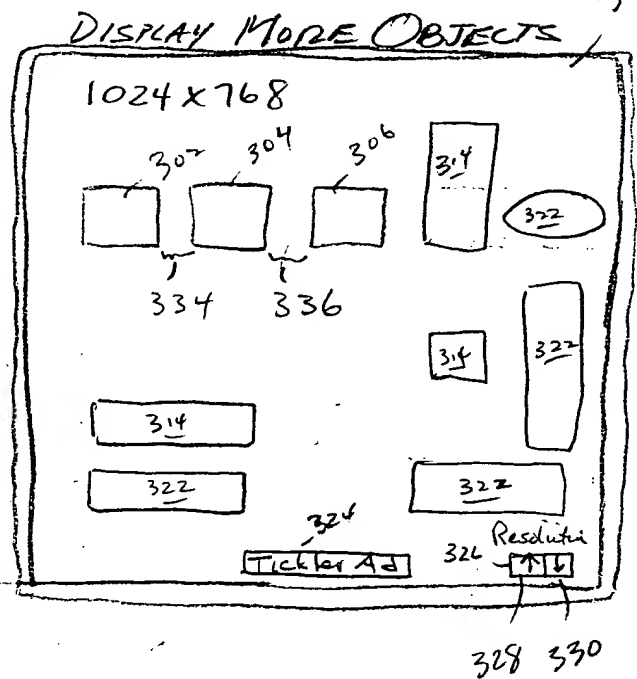 DISPLAY MORE OBJECTS
1024 x 768
302 304 306
314
322
334 336
314
322
314
322
322
324
Tickler Ad
Resolution
326
↑ ↓
328 330